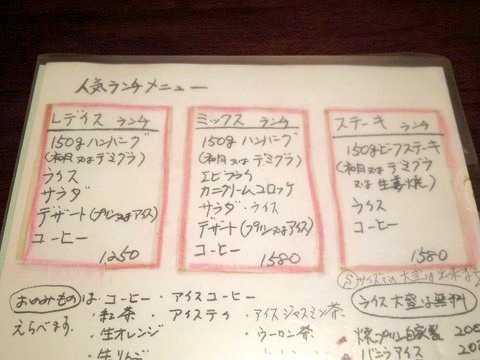 人気ランチメニュー
レディス ランチ
150gハンバーグ
(和風又はデミグラ)
ライス
サラダ
デザート(プリン又はアイス)
コーヒー
1250
ミックス ランチ
150gハンバーグ
(和風又はデミグラ)
エビフライ
カニクリームコロッケ
サラダ・ライス
デザート(プリン又はアイス)
コーヒー
1580
ステーキ ランチ
150gビーフステーキ
(和風又はデミグラ
又は生姜焼)
ライス
コーヒー
1580
おのみものは・コーヒー・アイスコーヒー
えらべます。・紅茶・アイスティ・アイスジャスミン茶
・生オレンジ・ウーロン茶
・生りんご
ライス大盛は無料
焼プリン自家製 200
バニラアイス 200